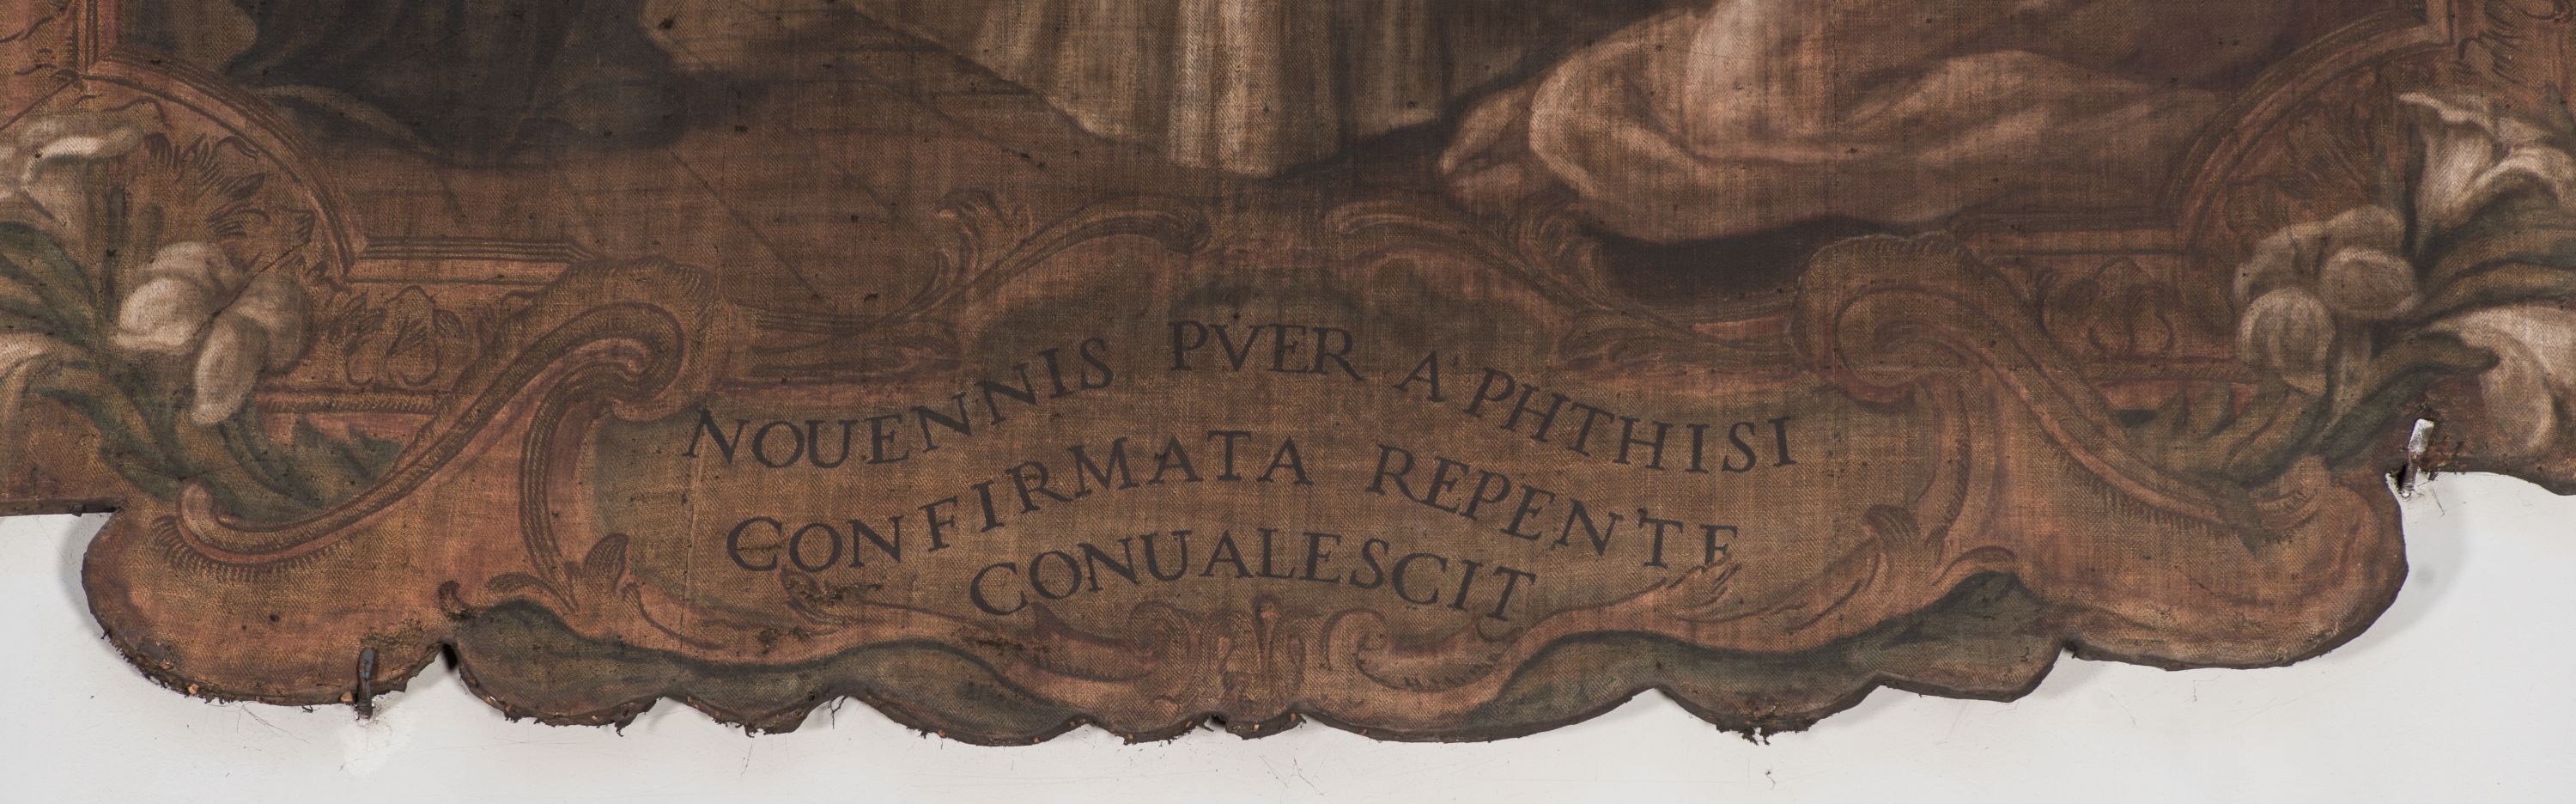 NOUENNIS PVER A PHTHISI
CONFIRMATA REPENTE
CONUALESCIT